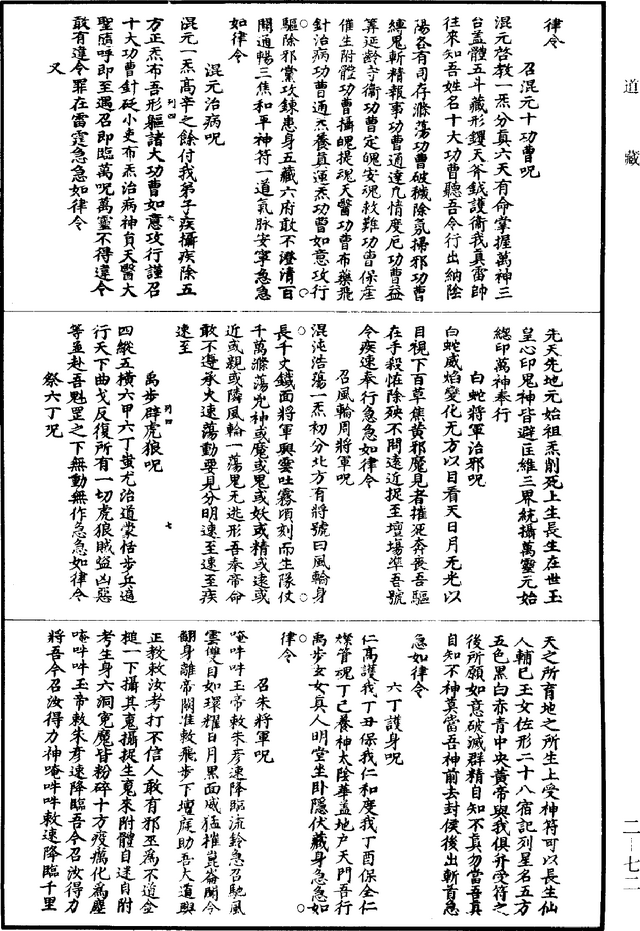 道藏
律令
召混元十功曹呪
混元啓教一炁分真六天有命掌握萬神三
台蓋體五斗藏形鑊天斧鉞護衛我真雷帥
往來知吾姓名十大功曹聽吾令行出納陰
陽各有司存滌蕩功曹破穢除氛掃邪功曹
縛鬼斬精報事功曹通達凡情度厄功曹益
筭延齡守衛功曹定魄安魂救難功曹保産
催生附體功曹攝魄提魂天醫功曹布藥飛
針治病功曹通炁養氣運炁功曹如意攻行
驅除邪黨攻鍊患身五藏六府敢不澄清百
關通暢三焦和平神符一道氣脉安寧急急
如律令
混元治病呪
混元一炁高辛之餘付我弟子疾攝疾除五
方正炁布吾形軀諸大功曹如意攻行謹召
十大功曹針砭小吏布炁治病神貟天醫大
聖隨呼即至遇召即臨萬呪萬靈不得違令
敢有違令罪在雷霆急急如律令
又
先天先地元始祖炁削死上生長生在世玉
皇心印鬼神皆避匡維三界統攝萬靈元始
總印萬神奉行
白蛇將軍治邪呪
白蛇威焰變化无方以目看天日月无光以
目視下百草焦黄邪魔見者摧死奔喪吾驅
在手殺恠除殃不問遠近捉至壇場準吾號
令疾速奉行急急如律令
召風輪周將軍呪
混沌浩蕩一炁初分北方有將號曰風輪身
長千丈鐵面將軍興雲吐霧頃刻而生隊仗
千萬滌蕩兇神或魔或鬼或妖或精或遠或
近或親或隣風輪一蕩鬼无逃形吾奉帝命
敢不遵承火速蕩勤要見分明速至速至疾
速至
禹步辟虎狼呪
四縱五横六甲六丁蚩尤治道蒙恬步兵遶
行天下曲戈反復所有一切虎狼賊盜凶惡
等並赴吾魁罡之下無動無作急急如律令
祭六丁呪
天之所育地之所生上受神符可以長生仙
人輔已玉女佐形二十八宿記列星名五方
五色黑白赤青中央黄帝與我俱升受符之
後所願如意破滅群精自知不真勿當吾真
自知不神莫當吾神前去封侯後出斬首急
急如律令
六丁護身呪
仁髙護我丁丑保我仁和度我丁酉保全仁
燦管魂丁巳養神太陰華蓋地户天門吾行
禹步玄女真人明堂坐卧隱伏藏身急急如
律令
召朱將軍呪
唵吽吽玉帝敕朱彦速降臨流鈴急召馳風
雲雙目如環耀日月黑面威猛摧崑崙聞令
翻身離帝闕准敕飛步下壇庭助吾大道興
正教敕汝考打不信人敢有邪巫為不道金
槌一下攝其䰟攝捉生䰟來附體自述自附
考生身六洞寃魔皆粉碎十方疫癘化為塵
唵吽吽玉帝敕朱彦速降臨吾今召汝得力
將吾今召汝得力神唵吽吽敕速降臨千里
二一七二